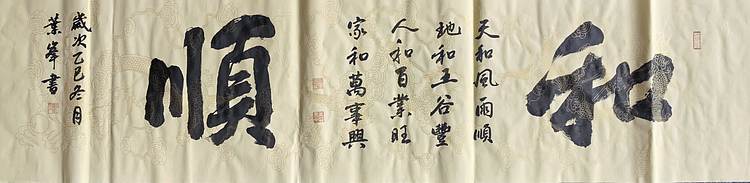 和
天和風雨順
地和五谷豐
人和百業旺
家和萬事興
順
歲次乙巳冬月
葉峯書